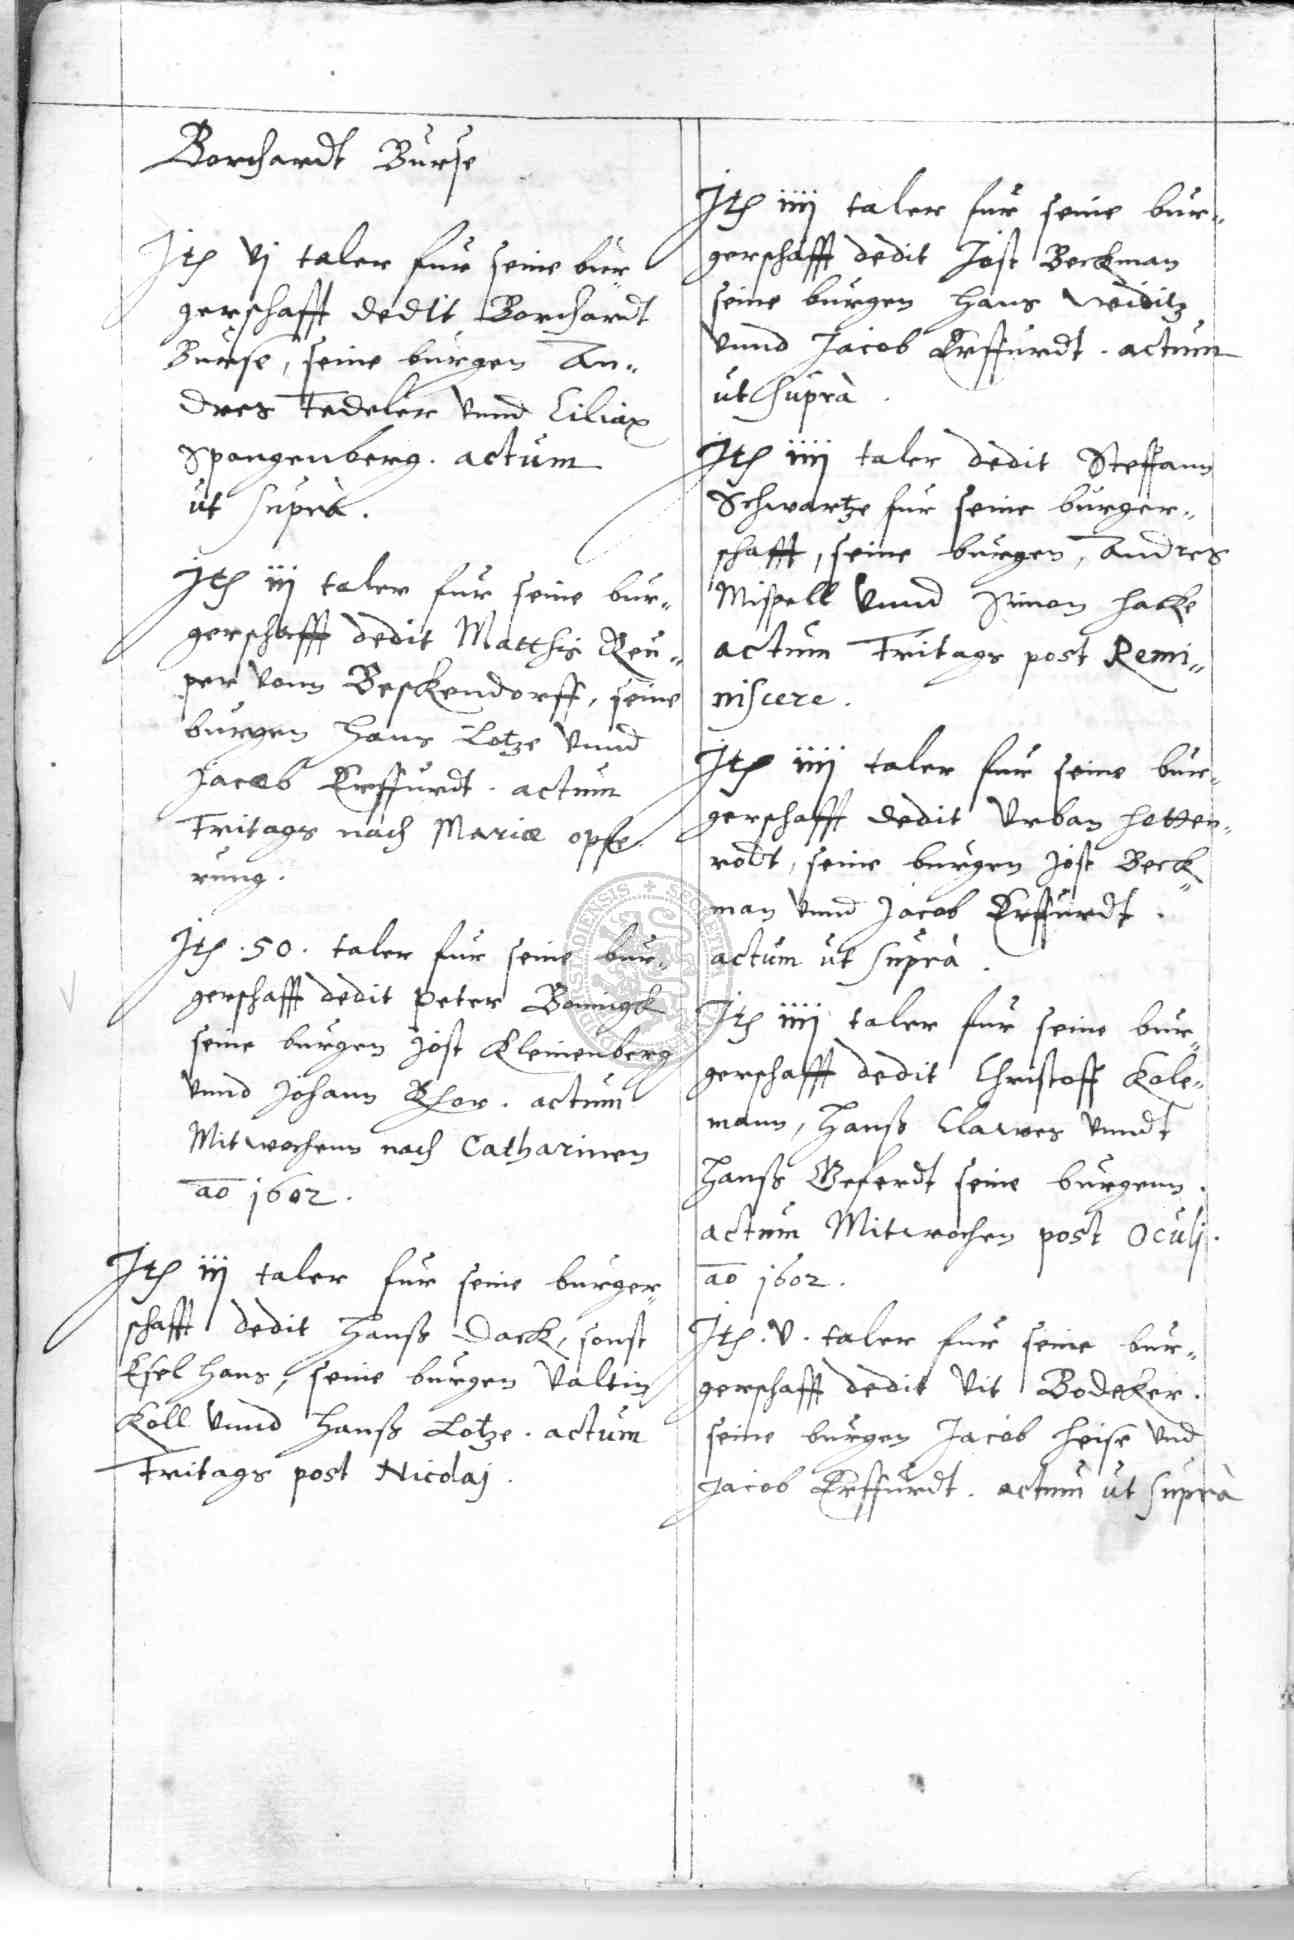 Borchardt Burse
Jtem vj taler fur seine bur-
gerschafft dedit Borchardt
Burse, seine burgen An-
dres Tedeler vnnd Ciliax
Spangenberg. actum
ut suprà.
Jtem iij taler fur seine bur-
gerschafft dedit Matthis Reu-
per vonn Beskendorff, seine
burgen Hans Lotze vnnd
Jacob Erffurdt. actum
Fritags nach Mariæ opfe
rung.
Jtem .50. taler fur seine bur-
gerschafft dedit peter Boningk
seine burgen Jost Kleinenberg
vnnd Johann Rhor. actum
Mitwochenn nach Catharinen
ao 1602.
Jtem iij taler fur seine burger-
schafft dedit Hanß Dack, sonst
Esel Hans, seine burgen Valtin
Koll vnnd Hanß Lotze. actum
Fritags post Nicolaj.
Jtem iiij taler fur seine bur-
gerschafft dedit Jost Beckman
seine burgen Hans Weiditz
vnnd Jacob Erffurdt. actum
ut suprà.
Jtem iiij taler dedit Steffann
Schwartze fur seine burger-
schafft, seine burgen, Andres
Mispell vnnd Simon Hakke
actum Fritags post Remi-
niscere.
Jtem iiij taler fur seine bur-
gerschafft dedit Vrban Hetten-
rodt, seine burgen Jost Beck-
man vnnd Jacob Erffurdt.
actum ut suprà.
Jtem iiij taler fur seine bur-
gerschafft dedit Christoff Kole-
mann, Hanß Clawes vnndt
Hanß Geferdt seine burgenn.
actum Mitwochen post Oculj.
ao 1602.
Jtem .v. taler fur seine bur-
gerschafft dedit Vit Bodeker.
seine burgen Jacob Heise vnd
Jacob Erffurdt. actum ut suprà